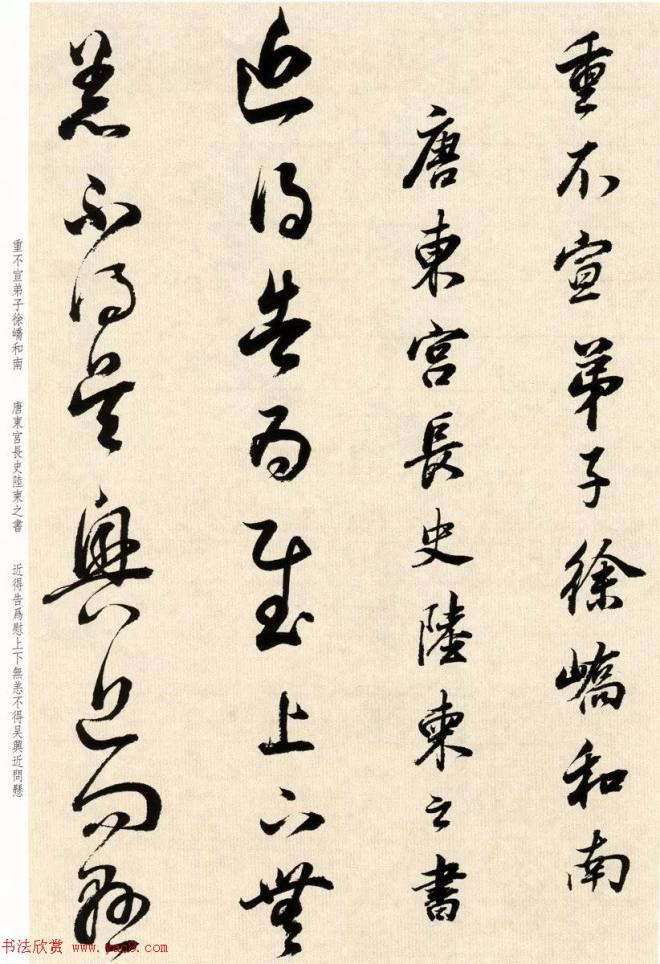 重不宣弟子徐嶠和南
唐東宮長史陸柬之書
近得告為慰上下無
恙不得吳興近問懸
重不宣弟子徐嶠和南 唐東宮長史陸柬之書 近得告爲慰上下無恙不得吳興近問懸
书法欣赏 www.yac8.com